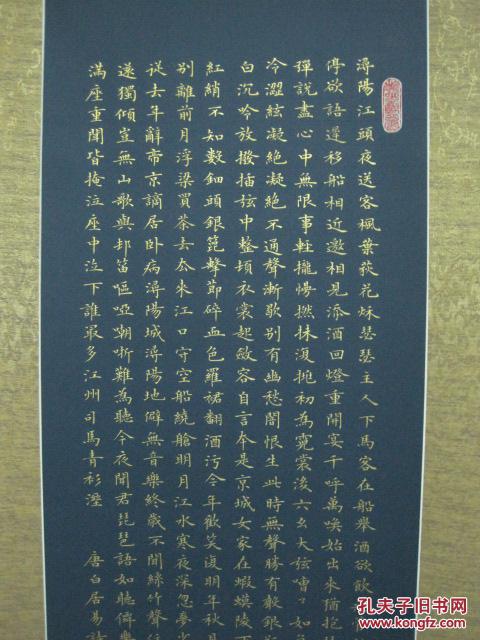 潯陽江頭夜送客楓葉荻花秌瑟瑟主人下馬客在船舉酒欲飲
停欲語遲移船相近邀相見添酒回燈重開宴千呼萬喚始出來猶抱
彈說盡心中無限事輕攏慢撚抹復挑初為霓裳後六幺大弦嘈〻如
冷澀絃凝絕凝絕不通聲漸歇別有幽愁闇恨生此時無聲勝有聲銀
白沉吟放撥插弦中整頓衣裳起斂容自言本是京城女家在蝦蟆陵下
紅綃不知數鈿頭銀篦擊節碎血色羅裙翻酒污今年歡笑復明年秋月
別離前月浮梁買茶去去來江口守空船繞艙明月江水寒夜深忽夢少
從去年辭帝京謫居臥病潯陽城潯陽地僻無音樂終歲不聞絲竹聲
遂獨傾豈無山歌與邨笛嘔啞嘲哳難為聽今夜聞君琵琶語如聽僊樂
滿座重聞皆掩泣座中泣下誰最多江州司馬青衫溼 唐白居易詩
孔夫子旧书网
kongfz.com